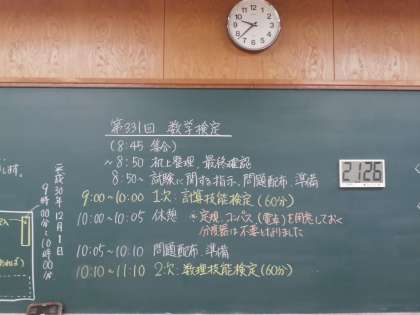 第331回 数学検定
(8:45 集合)
~8:50 机上整理、最終確認
8:50~ 試験に関する指示、問題配布、準備
9:00~10:00 1次:計算技能検定(60分)
10:00~10:05 休憩
※定規、コンパス(電卓)を用意しておく
分度器は不要となりました
10:05~10:10 問題配布、準備
10:10~11:10 2次:数理技能検定(60分)
平成30年12月1日
9時00分~10時00分
21:26